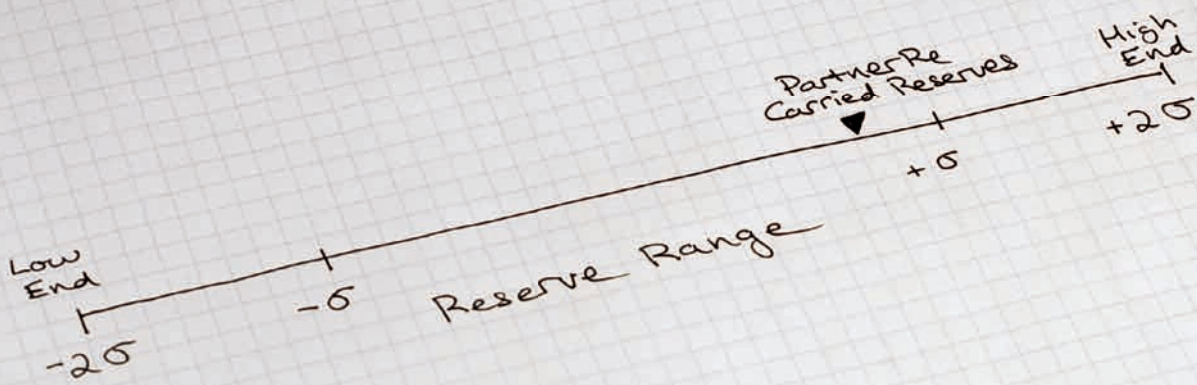 Low
End
-2σ
-σ
Reserve Range
PartnerRe
Carried Reserves
+σ
High
End
+2σ